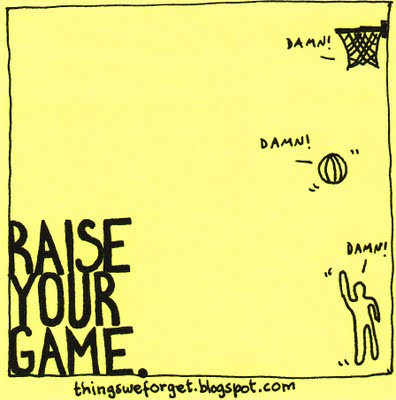 DAMN!
DAMN!
DAMN!
RAISE
YOUR
GAME.
thingsweforget.blogspot.com